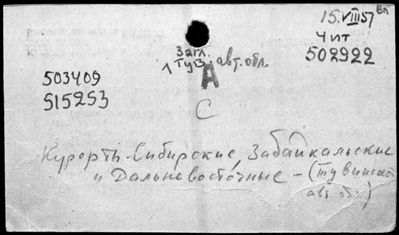 15.VIII 51 Вп
Загл. Чит
1 Тув. авт. обл. 502922
503409 А
515253
С
Курорты-Сибирские, Забайкальские
и Дальневосточные - (Тувинск.
авт. обл.)